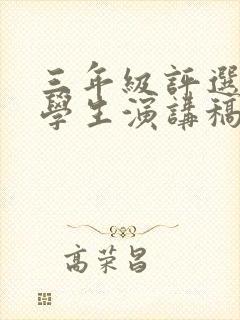 三年級評選
學生演講稿
高荣昌